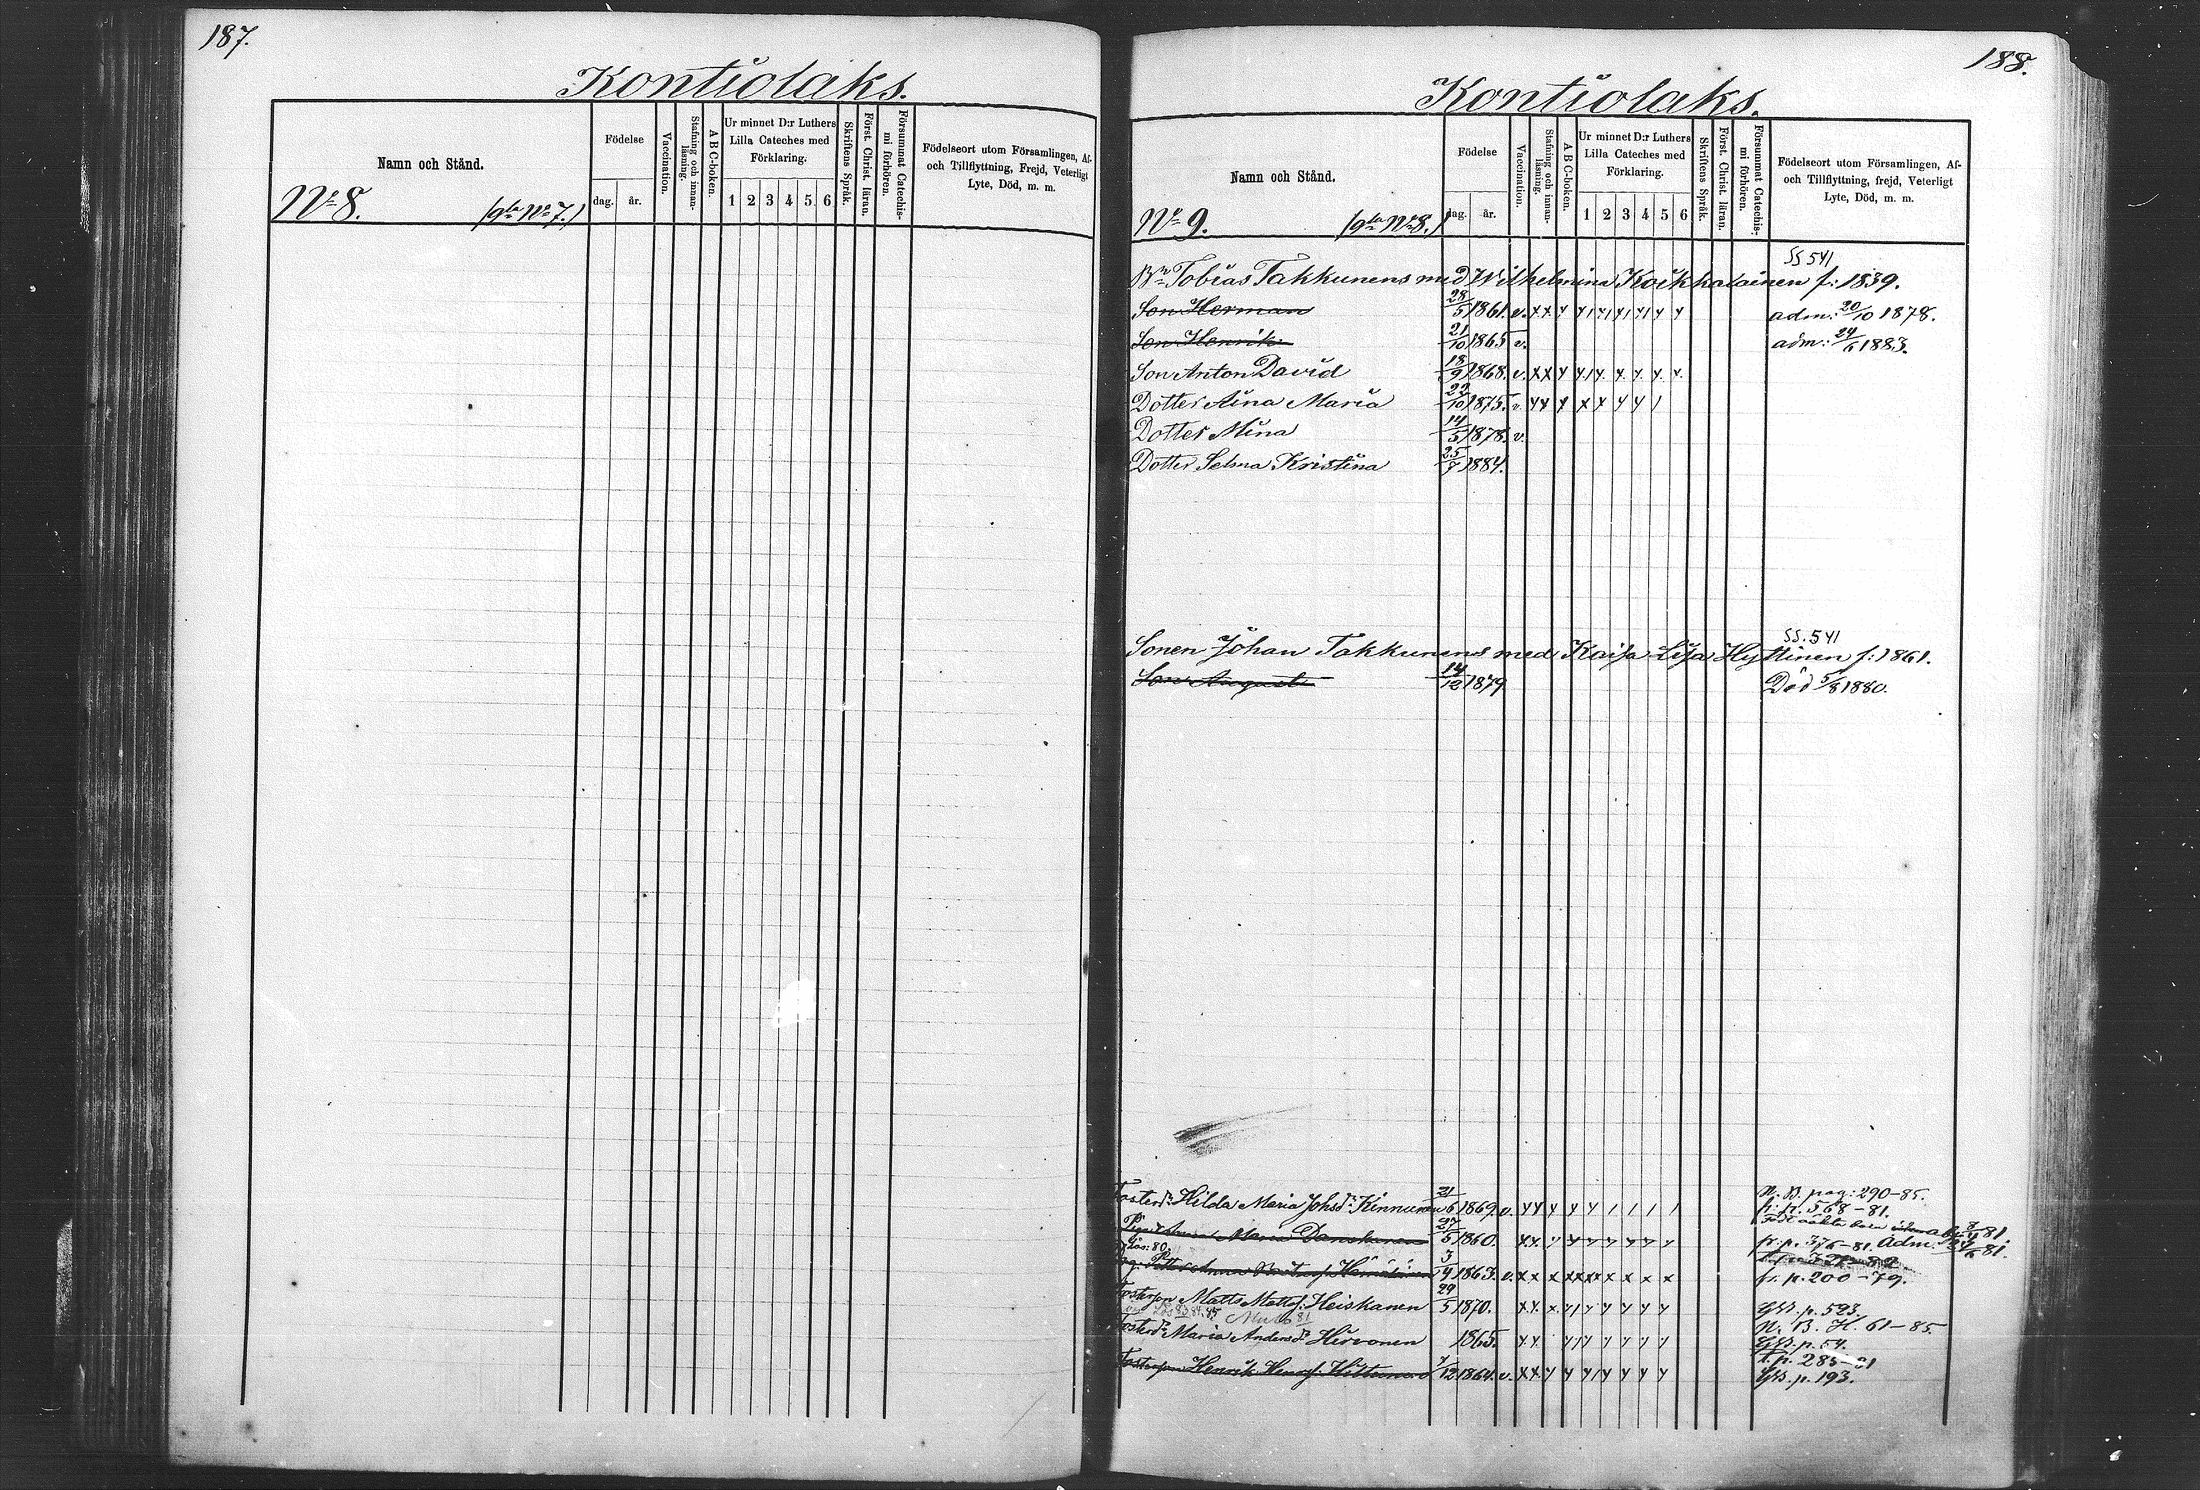 187.
Kontiolaks.
Namn och Stånd.
Födelse
dag. år.
Vaccination.
Stafning och innanläsning.
A B C-boken.
Ur minnet D:r Luthers Lilla Cateches med Förklaring.
1 2 3 4 5 6
Skriftens Språk.
Först. Christ. läran.
Försummat Catechismi förhören.
Födelseort utom Församlingen, Af- och Tillflyttning, Frejd, Veterligt Lyte, Död, m. m.
No 8. (gla No 7.)
188.
Kontiolaks.
Namn och Stånd.
Födelse
dag. år.
Vaccination.
Stafning och innanläsning.
A B C-boken.
Ur minnet D:r Luthers Lilla Cateches med Förklaring.
1 2 3 4 5 6
Skriftens Språk.
Först. Christ. läran.
Försummat Catechismi förhören.
Födelseort utom Församlingen, Af- och Tillflyttning, frejd, Veterligt Lyte, Död, m. m.
No 9. (gla No 8.)
SS 541
Bn Tobias Takkunens med Wilhelmina Koikkalainen f: 1839.
Son Herman 28/5 1861. v. adm: 20/10 1878.
Son Henrik 21/10 1865 v. adm: 24/6 1883.
Son Anton David 18/9 1868. v.
Dotter Aina Maria 22/10 1875. v.
Dotter Mina 14/5 1878. v.
Dotter Selma Kristina 25/7 1884.
SS. 541
Sonen Johan Takkunens med Kaisa Lisa Hyttinen f: 1861.
Son August 14/12 1879 Död 5/8 1880.
N. B. pag: 290-85.
Fosterdr Hilda Maria Johsdr Kinnunen 21/6 1869. v. fr. p. 568-81.
Maria Danskanen 27/5 1860. fr. p. 376-81. Adm.
3/4 1863. v. fr. p. 200-79.
Fosterson Matts Mattss: Heiskanen 29/5 1870. p. 523.
N. B. H. 61-85.
Fosterdr Maria Andersdr Hirvonen 1865. p. 54.
t. p. 285-81
Fosterson Henrik Henrs: Hiltunen 7/12 1864. v. p. 193.